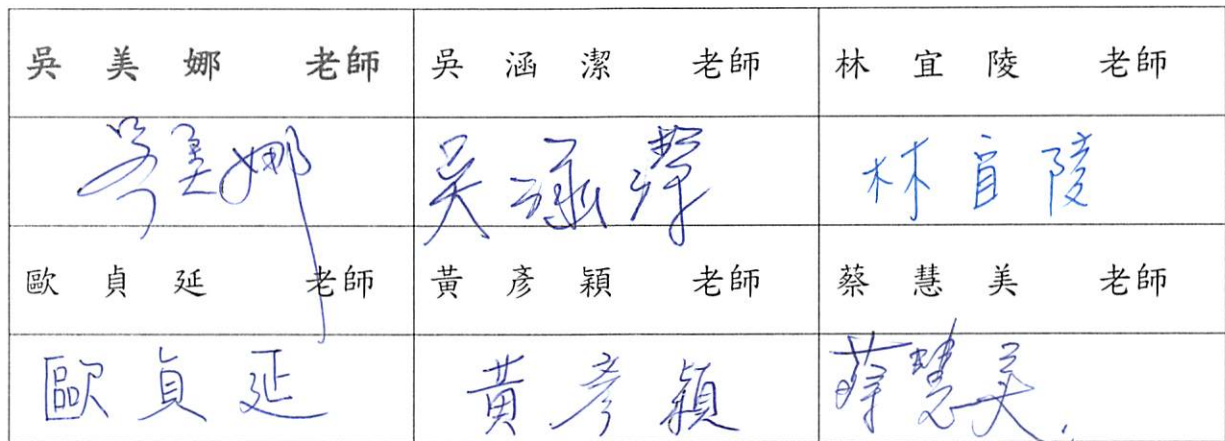 吳 美 娜 老師 吳 涵 潔 老師 林 宜 陵 老師
吳美娜 吳涵潔 林宜陵
歐 貞 延 老師 黃 彥 穎 老師 蔡 慧 美 老師
歐貞延 黃彥穎 蔡慧美